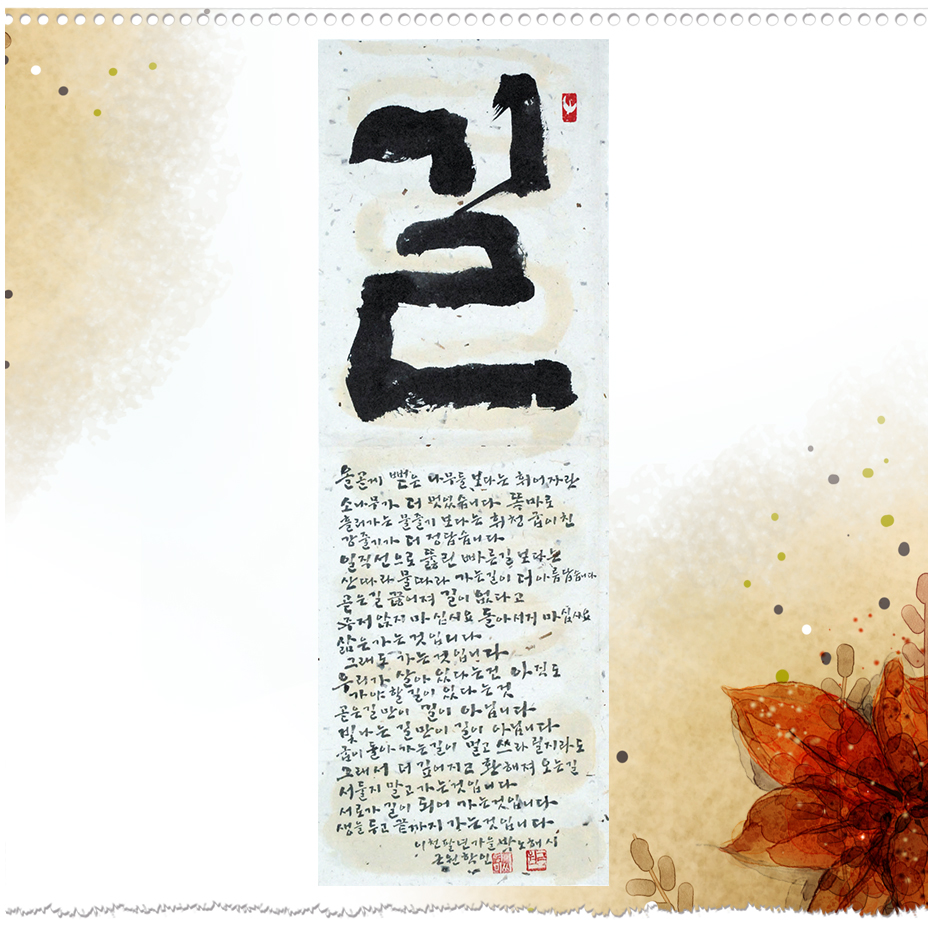 길
올곧게 뻗은 나무들 보다는 휘어자란
소나무가 더 멋있습니다 똑바로
흘러가는 물줄기 보다는 휘청 굽이친
강줄기가 더 정답습니다
일직선으로 뚫린 빠른길 보다는
산따라 물따라 가는길이 더 아름답습니다
곧은길 끊어져 길이 없다고
주저앉지 마십시요 돌아서지 마십시요
삶은 가는 것입니다
그래도 가는 것입니다
우리가 살아 있다는건 아직도
가야할 길이 있다는 것
곧은길 만이 길이 아닙니다
빛나는 길 만이 길이 아닙니다
굽이 돌아 가는길이 멀고 쓰라릴지라도
그래서 더 깊어지고 환해져 오는길
서둘지 말고 가는것입니다
서로가 길이 되어 가는것입니다
생을 두고 끝까지 가는것입니다
이천팔년가을 박노해 시